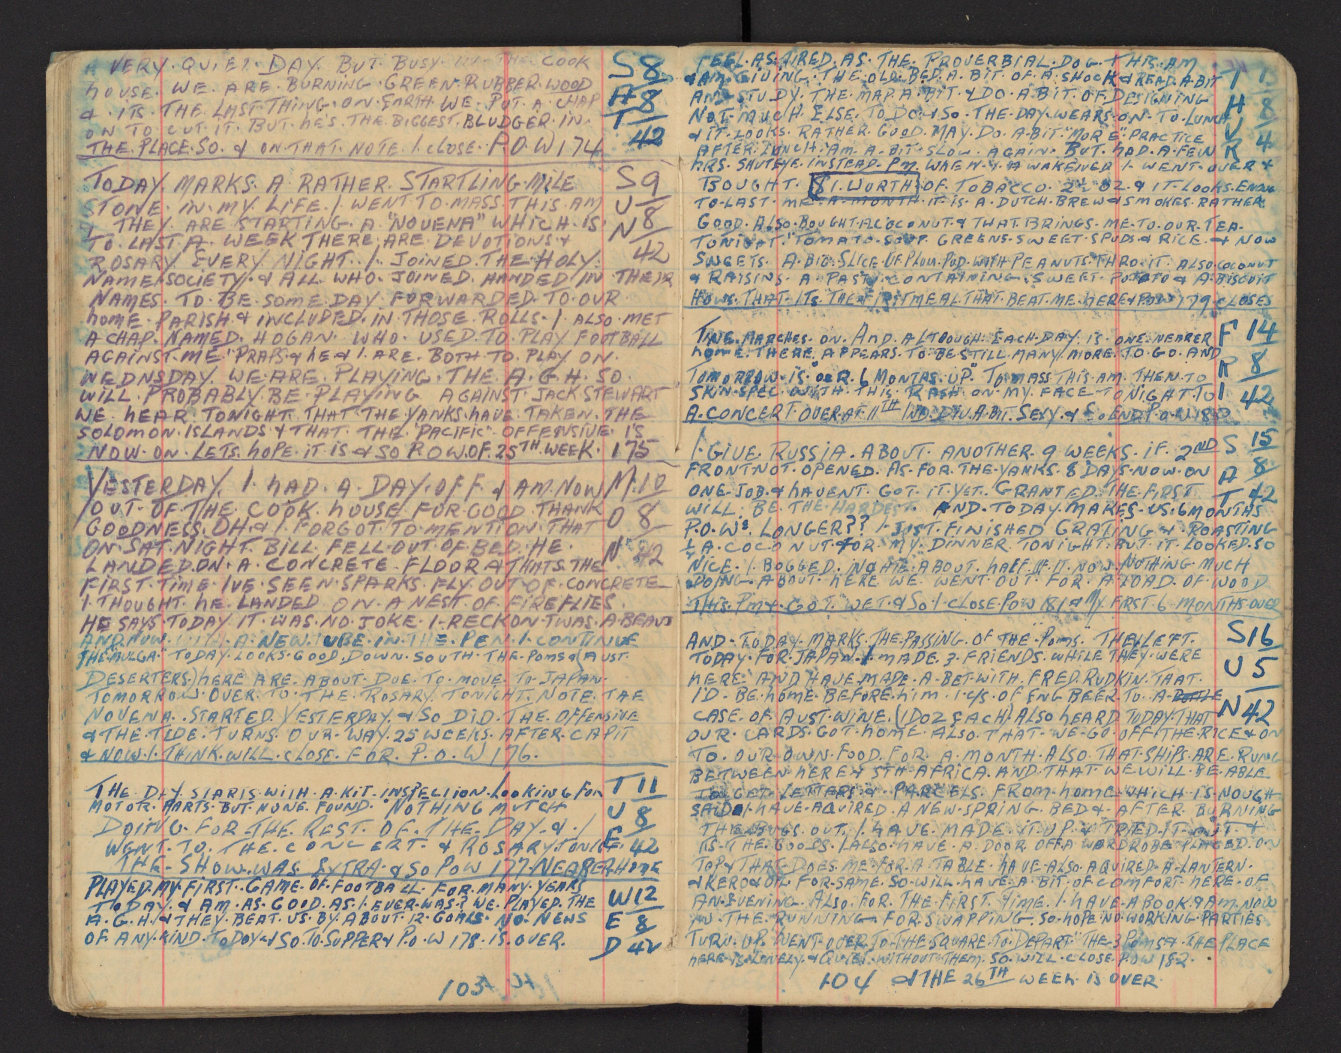 A VERY. QUIET. DAY. BUT BUSY. IN. THE COOK
HOUSE. WE. ARE. BURNING. GREEN. RUBBER. WOOD
& ITS. THE. LAST. THING. ON. EARTH. WE. PUT. A. CHAP
ON. TO. CUT. IT. BUT. HE'S. THE. BIGGEST. BLUDGER. IN.
THE. PLACE. SO. & ON. THAT. NOTE. I. CLOSE. P.O.W 174
SAT 8/8/42
TODAY. MARKS. A. RATHER. STARTLING. MILE
STONE. IN. MY. LIFE. I. WENT. TO. MASS. THIS. AM
& THEY. ARE. STARTING. A. "NOVENA" WHICH. IS.
TO. LAST. A. WEEK. THERE. ARE. DEVOTIONS. &
ROSARY. EVERY. NIGHT. I. JOINED. THE. HOLY.
NAME. SOCIETY. & ALL. WHO. JOINED. HANDED. IN. THEIR
NAMES. TO. BE. SOME. DAY. FORWARDED. TO. OUR.
HOME. PARISH. & INCLUDED. IN. THOSE. ROLLS. I. ALSO. MET
A. CHAP. NAMED. HOGAN. WHO. USED. TO. PLAY. FOOTBALL
AGAINST. ME. & HE. & I. ARE. BOTH. TO. PLAY. ON.
WEDNSDAY. WE. ARE. PLAYING. THE. A.G.H. SO.
WILL. PROBABLY. BE. PLAYING. AGAINST. JACK. STEWART
WE. HEAR. TONIGHT. THAT. THE. YANKS. HAVE. TAKEN. THE.
SOLOMON. ISLANDS. & THAT. THE. "PACIFIC" OFFENSIVE. IS
NOW. ON. LETS. HOPE. IT. IS. & SO P.O.W. OF. 25TH WEEK. 175
SUN 9/8/42
YESTERDAY. I. HAD. A. DAY. OFF. & AM. NOW
OUT. OF. THE. COOK. HOUSE. FOR. GOOD. THANK
GOODNESS. OH. & I. FORGOT. TO. MENTION. THAT
ON. SAT. NIGHT. BILL. FELL. OUT. OF. BED. HE.
LANDED. ON. A. CONCRETE. FLOOR. & THATS. THE
FIRST. TIME. IVE. SEEN. SPARKS. FLY. OUT. OF. CONCRETE
I. THOUGHT. HE. LANDED. ON. A. NEST. OF. FIREFLIES.
HE. SAYS. TODAY. IT. WAS. NO. JOKE. I. RECKON. TWAS. A. BEAUT
AND. NOW. WITH. A. NEW. TUBE. IN. THE. PEN. I. CONTINUE
THE. "MULGA". TODAY. LOOKS. GOOD. DOWN. SOUTH. THE. POMS & (AUST
DESERTERS) HERE. ARE. ABOUT. DUE. TO. MOVE. TO. JAPAN.
TOMORROW. OVER. TO. THE. ROSARY. TONIGHT. NOTE. THE
NOVENA. STARTED. YESTERDAY. & SO. DID. THE. OFFENSIVE
& THE. TIDE. TURNS. OUR. WAY. 25 WEEKS. AFTER. CAPIT
& NOW. I. THINK. WILL. CLOSE. FOR. P.O.W 176.
MON 10/8/42
THE. DAY. STARTS. WITH. A. KIT. INSPECTION. LOOKING. FOR
MOTOR. PARTS. BUT. NONE. FOUND. NOTHING. MUTCH
DOING. FOR. THE. REST. OF. THE. DAY. & I
WENT. TO. THE. CONCERT. & ROSARY. TONIGHT
THE. SHOW. WAS. EXTRA. & SO POW 177. NEARER. HOME
TUE 11/8/42
PLAYED. MY. FIRST. GAME. OF. FOOTBALL. FOR. MANY. YEARS
TODAY. & AM. AS. GOOD. AS. I. EVER. WAS. & WE. PLAYED. THE
A.G.H. & THEY. BEAT. US. BY. ABOUT. 12 GOALS. NO. NEWS
OF. ANY. KIND. TODAY. & SO. TO. SUPPER. & P.O.W 178. IS. OVER.
WED 12/8/42
103
FEEL. AS. TIRED. AS. THE. PROVERBIAL. DOG. THIS. AM
& AM. GIVING. THE. OLD. BED. A. BIT. OF. A. SHOCK. & READ. A. BIT
AM. STUDY. THE. MAP. A. BIT. & DO. A. BIT. OF. DESIGNING
NOT. MUCH. ELSE. TO. DO. & SO. THE. DAY. WEARS. ON. TO. LUNCH
& IT. LOOKS. RATHER. GOOD. MAY. DO. A. BIT. "MORE" PRACTICE
AFTER. LUNCH. AM. A. BIT. SLOW. AGAIN. BUT. HAD. A. FEW
HRS. SHUTEYE. INSTEAD. PM. WHEN. I. AWAKENED. I. WENT. OVER &
BOUGHT. $1. WORTH OF. TOBACCO. & IT. LOOKS. ENOUGH
TO. LAST. ME. A. MONTH. IT. IS. A. DUTCH. BREW. & SMOKES. RATHER
GOOD. ALSO. BOUGHT. A. COCONUT. & THAT. BRINGS. ME. TO. OUR. TEA.
TONIGHT. TOMATO. SOUP. GREENS. SWEET. SPUDS. & RICE. & NOW
SWEETS. A. BIG. SLICE. OF. PLUM. PUD. WITH. PEANUTS. THRO. IT. ALSO. COCONUT
& RAISINS. A. PASTY. CONTAINING. SWEET. POTATO. & A. BISCUIT
HOWS. THAT. ITS. THE. FIRST. MEAL. THAT. BEAT. ME. HERE. & POW 179. CLOSES
THUR 8/4
TIME. MARCHES. ON. AND. ALTHOUGH. EACH. DAY. IS. ONE. NEARER
HOME. THERE. APPEARS. TO. BE. STILL. MANY. MORE. TO. GO. AND
TOMORROW. IS. "OUR. 6 MONTHS. UP". TO. MASS. THIS. AM. THEN. TO
SKIN. SPEC. WITH. THIS. RASH. ON. MY. FACE. TONIGHT. TO
A. CONCERT. OVER. AT. 11TH IND. DIV. A. BIT. SEXY. & SO. END. P.O.W. 180
FRI 14/8/42
I. GIVE. RUSSIA. ABOUT. ANOTHER. 9 WEEKS. IF. 2ND
FRONT. NOT. OPENED. AS. FOR. THE. YANKS. 8 DAYS. NOW. ON
ONE. JOB. & HAVENT. GOT. IT. YET. GRANTED. THE. FIRST
WILL. BE. THE. HARDEST. AND. TODAY. MAKES. US. 6 MONTHS
P.O.W'S. LONGER?? I. JUST. FINISHED. GRATING. & ROASTING
½ A. COCONUT. FOR. MY. DINNER. TONIGHT. BUT. IT. LOOKED. SO
NICE. I. BOGGED. INTO. ME. ABOUT. HALF. OF. IT. NOW. NOTHING. MUCH
DOING. ABOUT. HERE. WE. WENT. OUT. FOR. A. LOAD. OF. WOOD
THIS. PM. & GOT. WET. & SO. I. CLOSE. POW 181 & MY. FIRST. 6. MONTHS. OVER
SAT 15/8/42
AND. TODAY. MARKS. THE. PASSING. OF. THE. "POMS". THEY. LEFT.
TODAY. FOR. JAPAN. I. MADE. 3. FRIENDS. WHILE. THEY. WERE
HERE. AND. HAVE. MADE. A. BET. WITH. FRED. RUDKIN. THAT.
I'D. BE. HOME. BEFORE. HIM. OF. ENG. BEER. TO. A. BOTTLE
CASE. OF. AUST. WINE. (1 DOZ EACH) ALSO. HEARD. TODAY. THAT
OUR. CARDS. GOT. HOME. ALSO. THAT. WE. GO. OFF. THE. RICE. & ON
TO. OUR. OWN. FOOD. FOR. A. MONTH. ALSO. THAT. SHIPS. ARE. RUNG
BETWEEN. HERE. & STH. AFRICA. AND. THAT. WE. WILL. BE. ABLE.
TO. GET. LETTERS. & PARCELS. FROM. HOME. WHICH. IS. NOUGH
SAID. I. HAVE. AQUIRED. A. NEW. SPRING. BED. & AFTER. BURNING
THE. BUGS. OUT. I. HAVE. MADE. IT. UP. & TRIED. IT. OUT. &
ITS. THE. GOODS. I. ALSO. HAVE. A. DOOR. OFF. A. WARDROBE. PLACED. ON
TOP. & THAT. DOES. ME. FOR. A. TABLE. HAVE. ALSO. AQUIRED. A. LANTERN.
& KERO. & OIL. FOR. SAME. SO. WILL. HAVE. A. BIT. OF. COMFORT. HERE. OF
AN. EVENING. ALSO. FOR. THE. FIRST. TIME. I. HAVE. A. BOOK. & AM. NOW
IN. THE. RUNNING. FOR. SWAPPING. SO. HOPE. NO. WORKING. PARTIES.
TURN. UP. WENT. OVER. TO. THE. SQUARE. TO. "DEPART" THE. 3 POMS. & THE. PLACE
HERE. IS. LONELY. & QUIET. WITHOUT. THEM. SO. WILL. CLOSE. POW 182.
SUN 16/5/42
104 & THE 26TH WEEK. IS OVER.